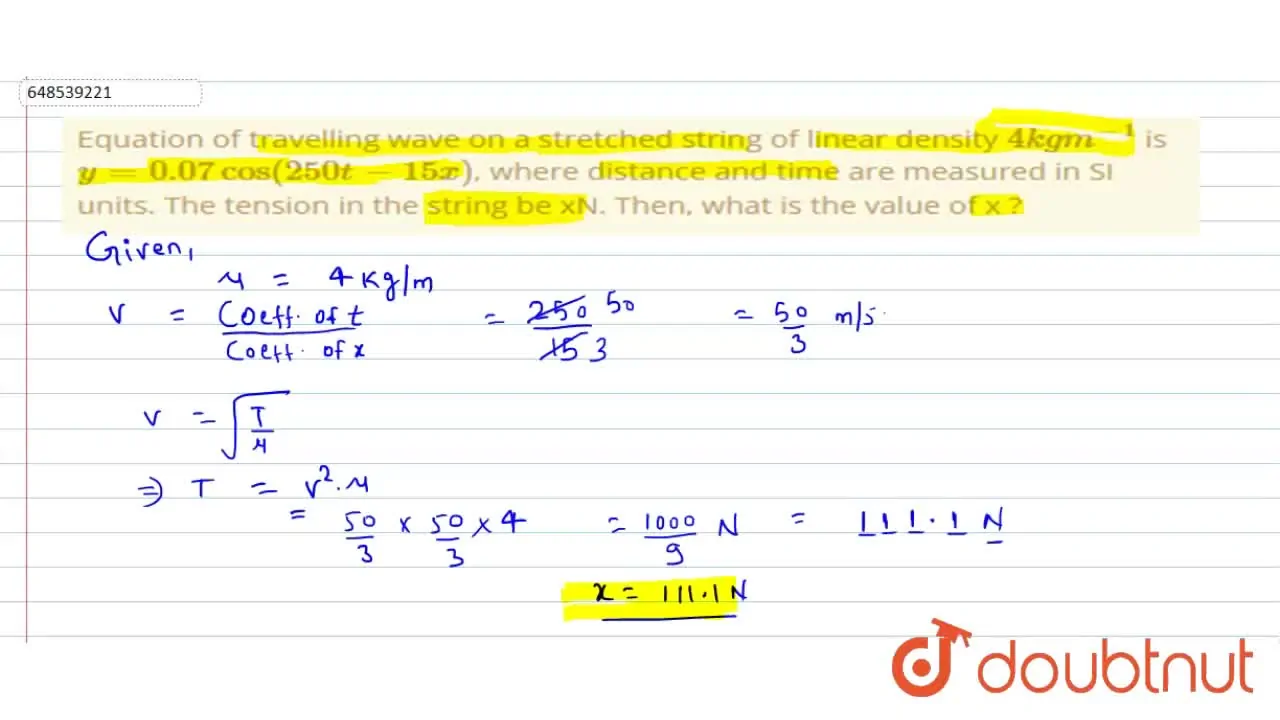 648539221
Equation of travelling wave on a stretched string of linear density 4kgm⁻¹ is
y = 0.07 cos(250t − 15x), where distance and time are measured in SI
units. The tension in the string be xN. Then, what is the value of x ?
Given,
μ = 4 kg/m
v = Coeff. of t / Coeff. of x = 250 50 / 15 3 = 50/3 m/s.
v = √(T/μ)
⇒ T = v². μ
= 50/3 × 50/3 × 4 = 1000/9 N = 111.1 N
x = 111.1 N
doubtnut